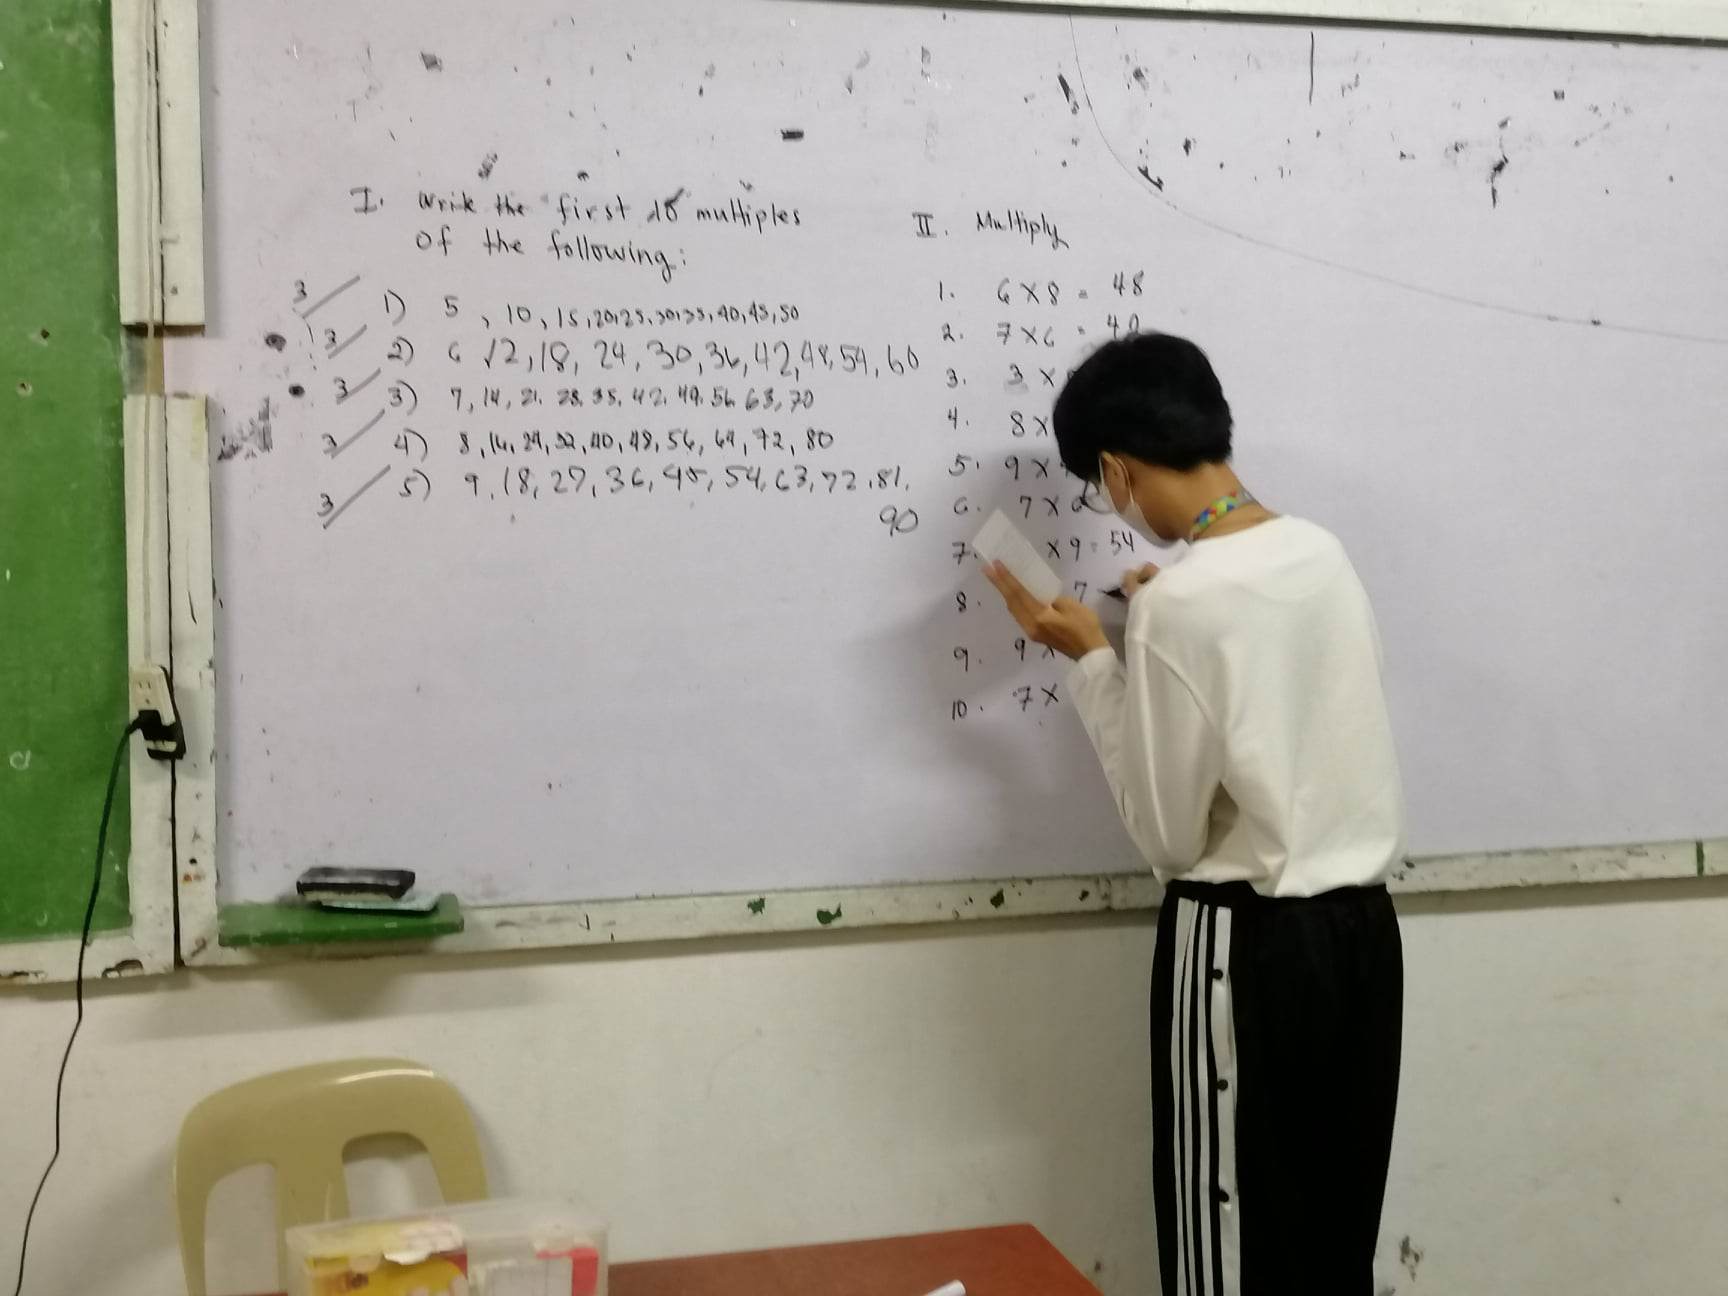 I. Write the first 10 multiples
of the following:
3 1) 5, 10, 15, 20, 25, 30, 35, 40, 45, 50
3 2) 6 12, 18, 24, 30, 36, 42, 48, 54, 60
3 3) 7, 14, 21, 28, 35, 42, 49, 56, 63, 70
3 4) 8, 16, 24, 32, 40, 48, 56, 64, 72, 80
3 5) 9, 18, 27, 36, 45, 54, 63, 72, 81,
90
II. Multiply
1. 6 x 8 = 48
2. 7 x 6 =
3. 3 x
4. 8 x
5. 9 x
6. 7 x
7. x 9 = 54
8. 7
9. 9 x
10. 7 x